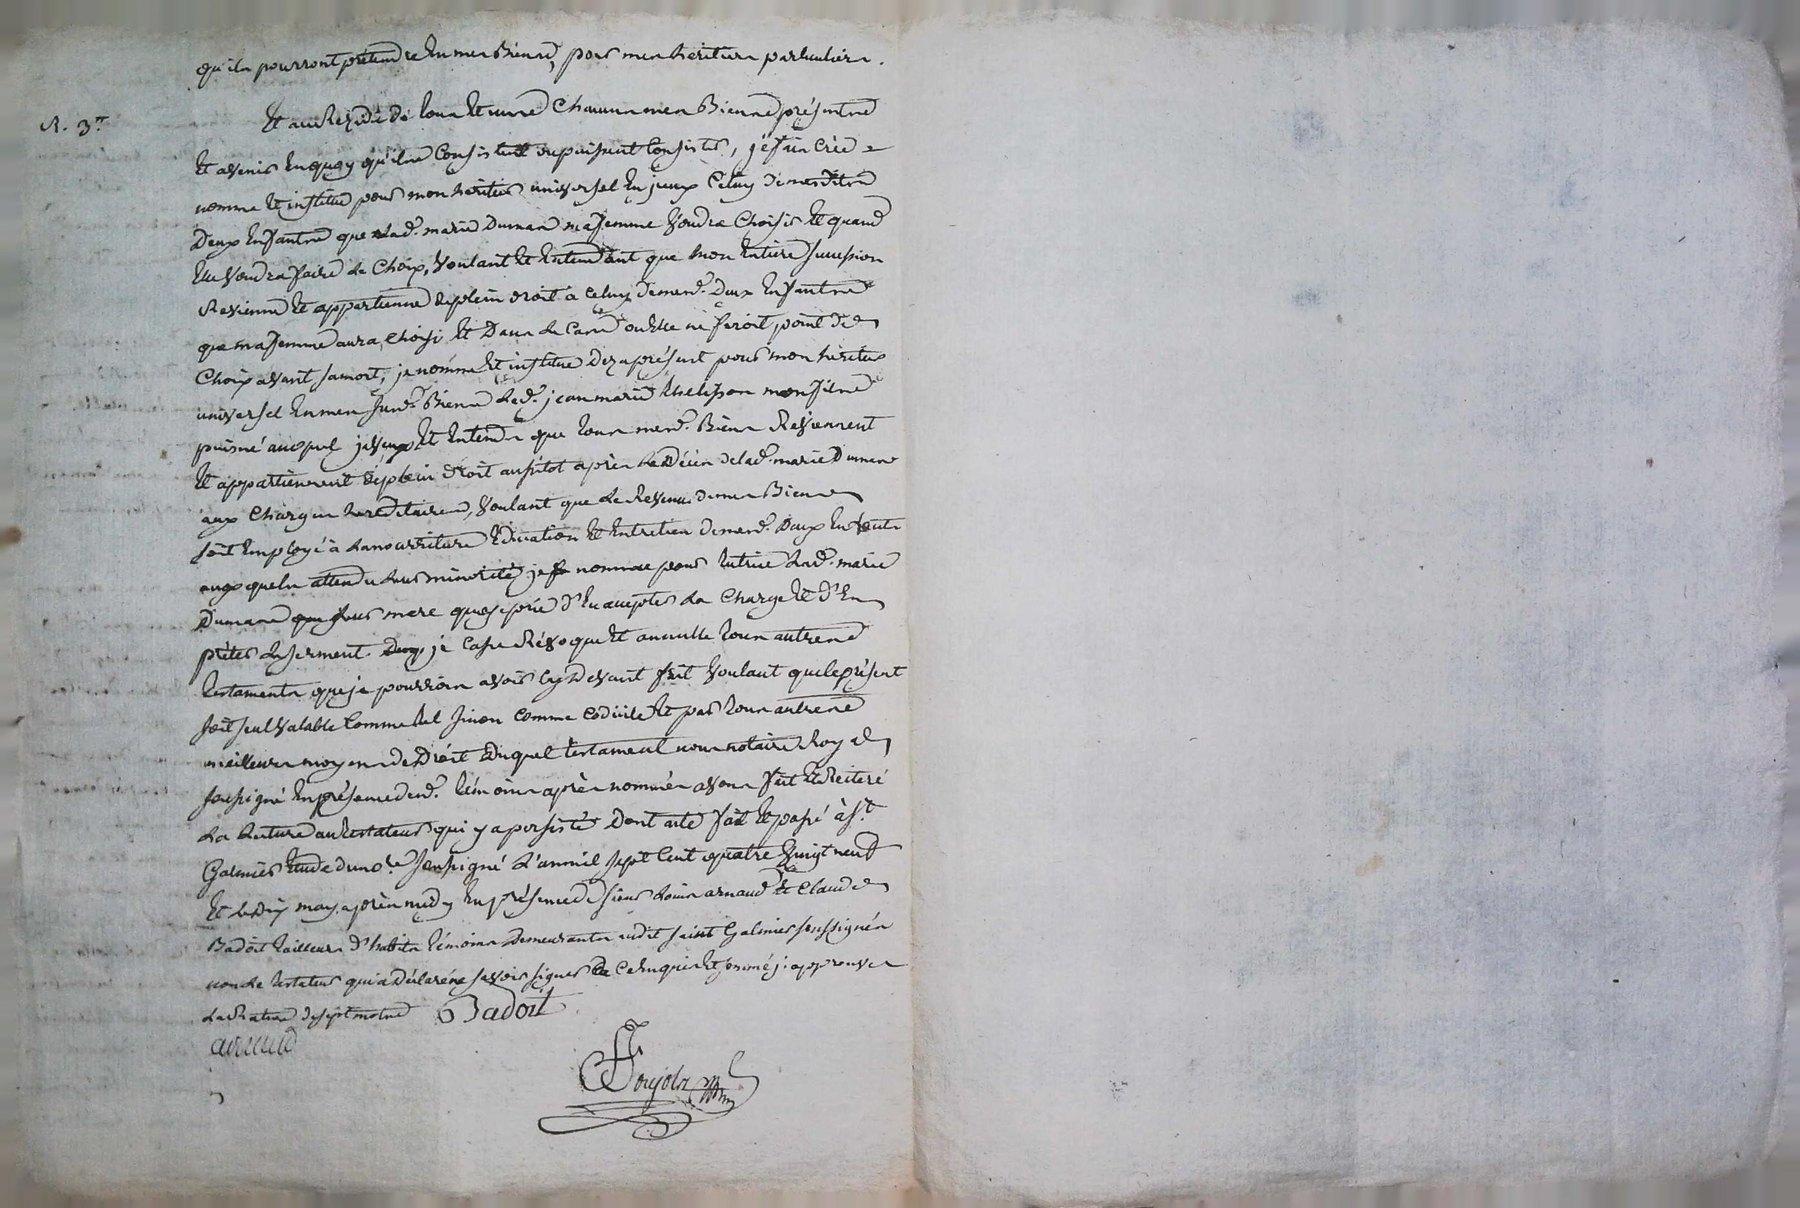 qu'ils pourront prétendre en mes Biens, pour mes heritiers particuliers.
R. 3.
Et au Résidu de tous et uns Chacuns mes Biens présents
et avenir en quoy qu'ils Consistent ou puissent Consister, j'é fais Créé
nomme et institue pour mon héritier universel en jceux Celuy de mesdits
Deux Enfants que lad. marie Dumas ma femme voudra Choisir et quand
Elle voudra faire le Choix, voulant et Entendant que mon Entiere succession
Revienne et appartienne de plein droit à Celuy de mesd. Deux Enfants
que ma femme aura Choisi et Dans le Cas ou Elle ne feroit point de
Choix avant sa mort, je nomme et institue Dez aprésent pour mon héritier
universel en mes susd. Biens led. jean marie mon fils
puisné auquel je veux et Entends que tous mesd. Biens Reviennent
et appartiennent de plein droit aussitot après le Décès de lad. marie Dumas
aux Charges hereditaires, voulant que le Revenu de mes Biens
soit Employé à la nourriture Education et Entretien de mesd. Deux Enfants
auxquels attendu leur minorité je nomme pour tutrice lad. marie
Dumas leur mere que je prie d'En accepter la Charge et d'En
préter le serment. je Casse Révoque et annulle tous autres
testaments que je pourrois avoir Cy Devant fait voulant que le présent
soit seul valable Comme tel sinon comme Codicile et par tous autres
meilleurs moyens de Droit Duquel testament nous notaire Royal
soussigné En présence desd. témoins après nommés avons fait et Réiteré
la lecture au testateur qui y a persisté Dont acte fait et passé à St.
Galmier Etude du no.re soussigné L'an mil sept Cent quatre vingt neuf
Et le Dix may après midy En présence de sieur Louis arnaud et Claude
Badoit tailleurs d'habits témoins Demeurants audit saint Galmier soussignés
non le testateur qui a Déclaré ne savoir signer de Ce Enquis et sommé j'approuve
la Rature de sept mots Badoit
arnaud
Poujols